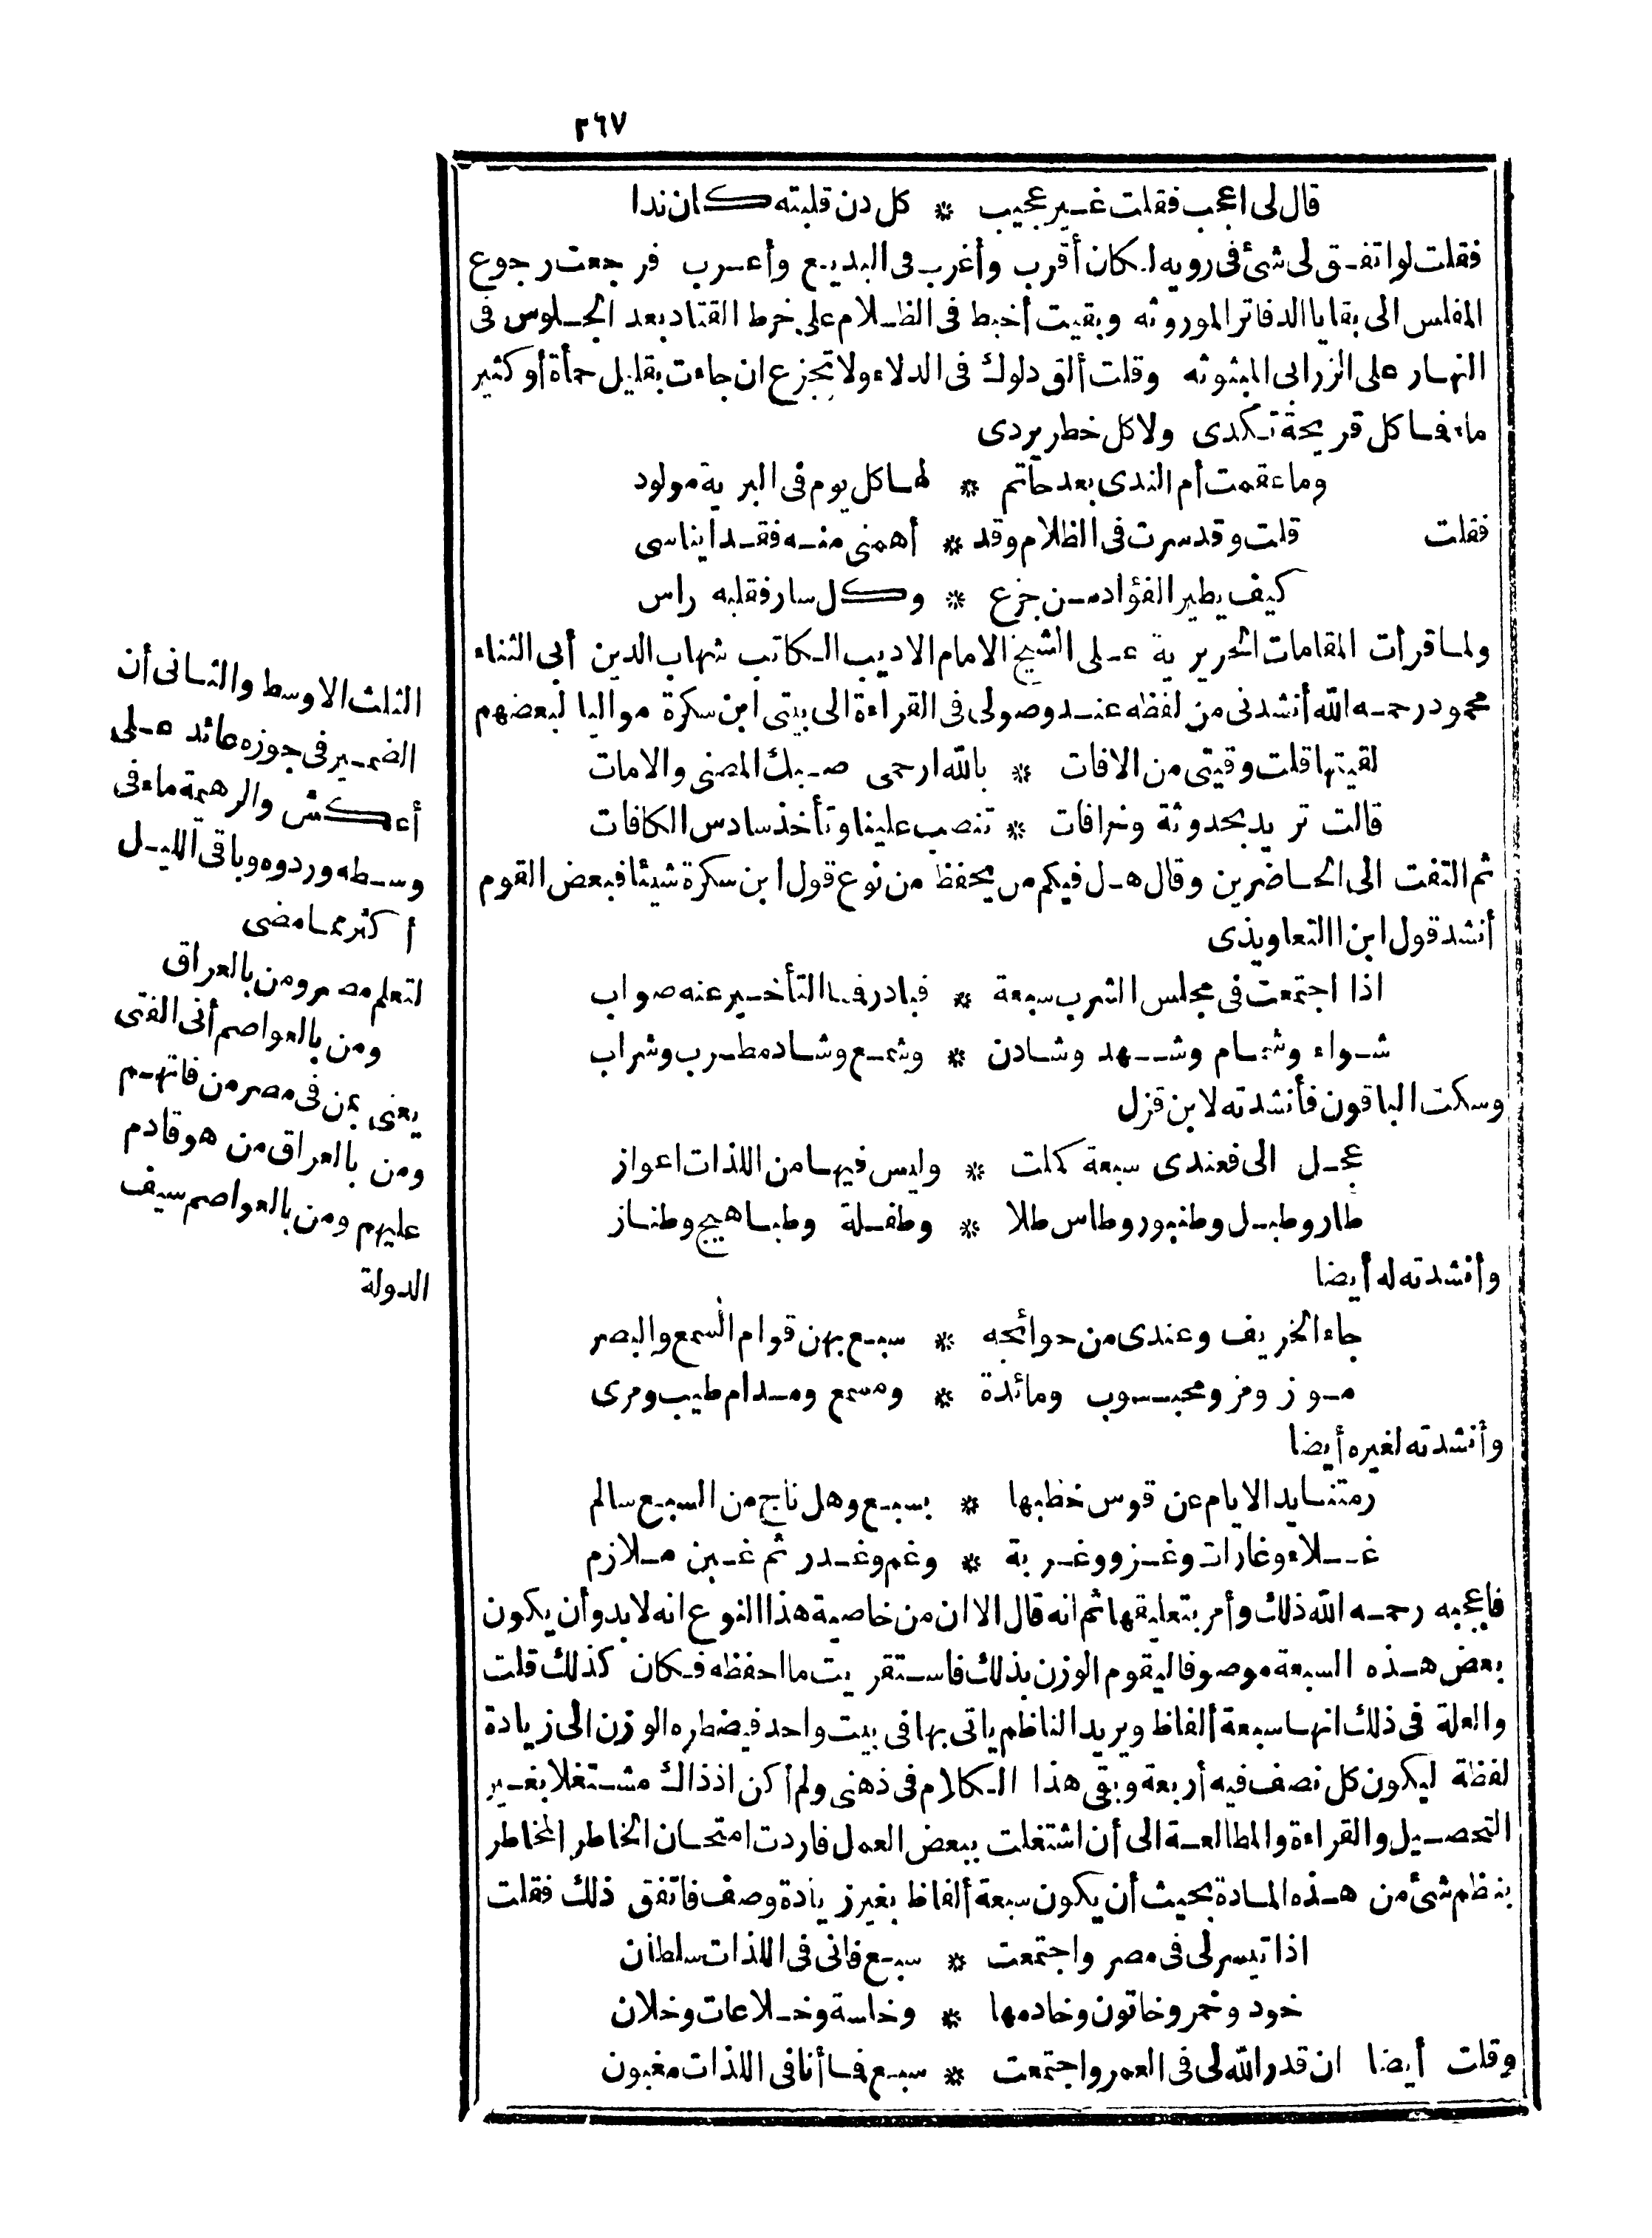 ٢٦٧
قال لى اعجب فقلت غير عجيب * كل دن قلبته كان ندا
فقلت لو اتفق لى شئ فى رويه لكان أقرب وأغرب فى البديع وأعرب فرجعت رجوع
المفلس الى بقايا الدفاتر الموروثه وبقيت أخبط فى الظلام على خرط القتاد بعد الجلوس فى
النهار على الزرابى المبثوثه وقلت ألق دلوك فى الدلاء ولا تجزع ان جاءت بقليل حمأة أو كثير
ماء فما كل قريحة تكدى ولا كل خطر يردى
وما عقمت أم الندى بعد حاتم * لها كل يوم فى البرية مولود
فقلت قلت وقد سرت فى الظلام وقد * أهمنى منه فقد ايناسى
كيف يطير الفؤاد من جزع * وكل سار فقلبه راس
ولما قرأت المقامات الحريرية على الشيخ الامام الاديب الكاتب شهاب الدين أبى الثناء
محمود رحمه الله أنشدنى من لفظه عند وصولى فى القراءة الى بيتى ابن سكرة مواليا لبعضهم
لقيتها قلت وقيتى من الافات * بالله ارحمى صبك المضنى والامات
قالت تريد بحدوثة وخرافات * تنصب علينا وتأخذ سادس الكافات
ثم التفت الى الحاضرين وقال هل فيكم من يحفظ من نوع قول ابن سكرة شيئا فبعض القوم
أنشد قول ابن االتعاويذى
اذا اجتمعت فى مجلس الشرب سبعة * فبادر فما التأخير عنه صواب
شواء وشمام وشهد وشادن * وشمع وشاد مطرب وشراب
وسكت الباقون فأنشدته لابن قزل
عجل الى فعندى سبعة كملت * وليس فيها من اللذات اعواز
طار وطبل وطنبور وطاس طلا * وطفلة وطباهيج وطناز
وأنشدته له أيضا
جاء الخريف وعندى من حوائجه * سبع بهن قوام السمع والبصر
موز ومز ومحبوب ومائدة * ومسمع ومدام طيب ومرى
وأنشدته لغيره أيضا
رمتنا يد الايام عن قوس خطبها * بسبع وهل ناج من السبع سالم
غلاء وغارات وغزو وغربة * وغم وغدر ثم غبن ملازم
فاعجبه رحمه الله ذلك وأمر بتعليقها ثم انه قال الا ان من خاصية هذا النوع انه لا بد وأن يكون
بعض هذه السبعة موصوفا ليقوم الوزن بذلك فاستقريت ما احفظه فكان كذلك قلت
والعلة فى ذلك انها سبعة ألفاظ ويريد الناظم ياتى بها فى بيت واحد فيضطره الوزن الى زيادة
لفظة ليكون كل نصف فيه أربعة وبقى هذا الكلام فى ذهنى ولم أكن اذ ذاك مشتغلا بغير
التحصيل والقراءة والمطالعة الى أن اشتغلت ببعض العمل فاردت امتحان الخاطر المخاطر
بنظم شئ من هذه المادة بحيث أن يكون سبعة ألفاظ بغير زيادة وصف فاتفق ذلك فقلت
اذا تيسر لى فى مصر واجتمعت * سبع فانى فى اللذات سلطان
خود وخمر وخاتون وخادمها * وخلسة وخلاعات وخلان
وقلت أيضا ان قدر الله لى فى العمر واجتمعت * سبع فما أنا فى اللذات مغبون
الثلث الاوسط والثانى أن
الضمير فى جوزه عائد على
أعكش والرهيمة ماء فى
وسطه وردوه وباقى الليل
أكثر مما مضى
لتعلم مصر ومن بالعراق
ومن بالعواصم أنى الفتى
يعنى بمن فى مصر من فاتهم
ومن بالعراق من هو قادم
عليهم ومن بالعواصم سيف
الدولة